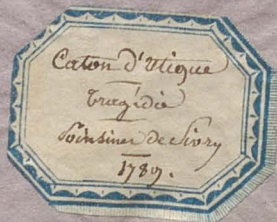 Caton d'Utique
Tragédie
Poinsinet de Sivry
1789.